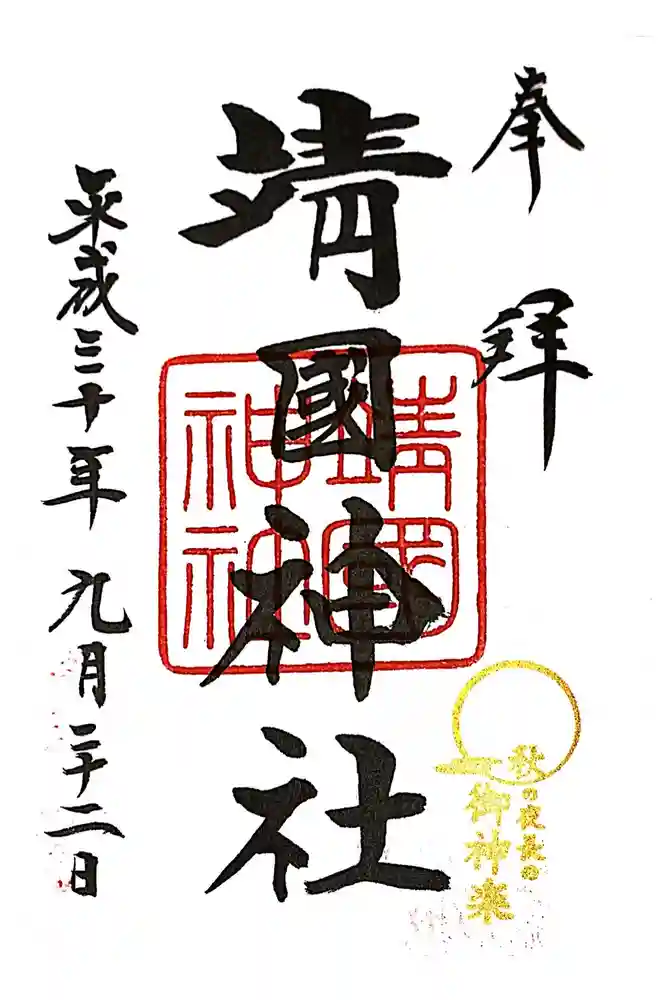 奉拝
靖國神社
靖國神社
平成三十年九月二十二日
秋の夜長の
御神楽